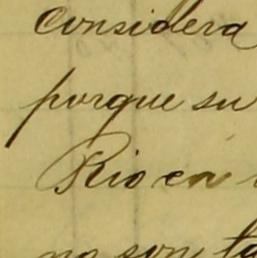 considera
porque su
Rio en
no son ta